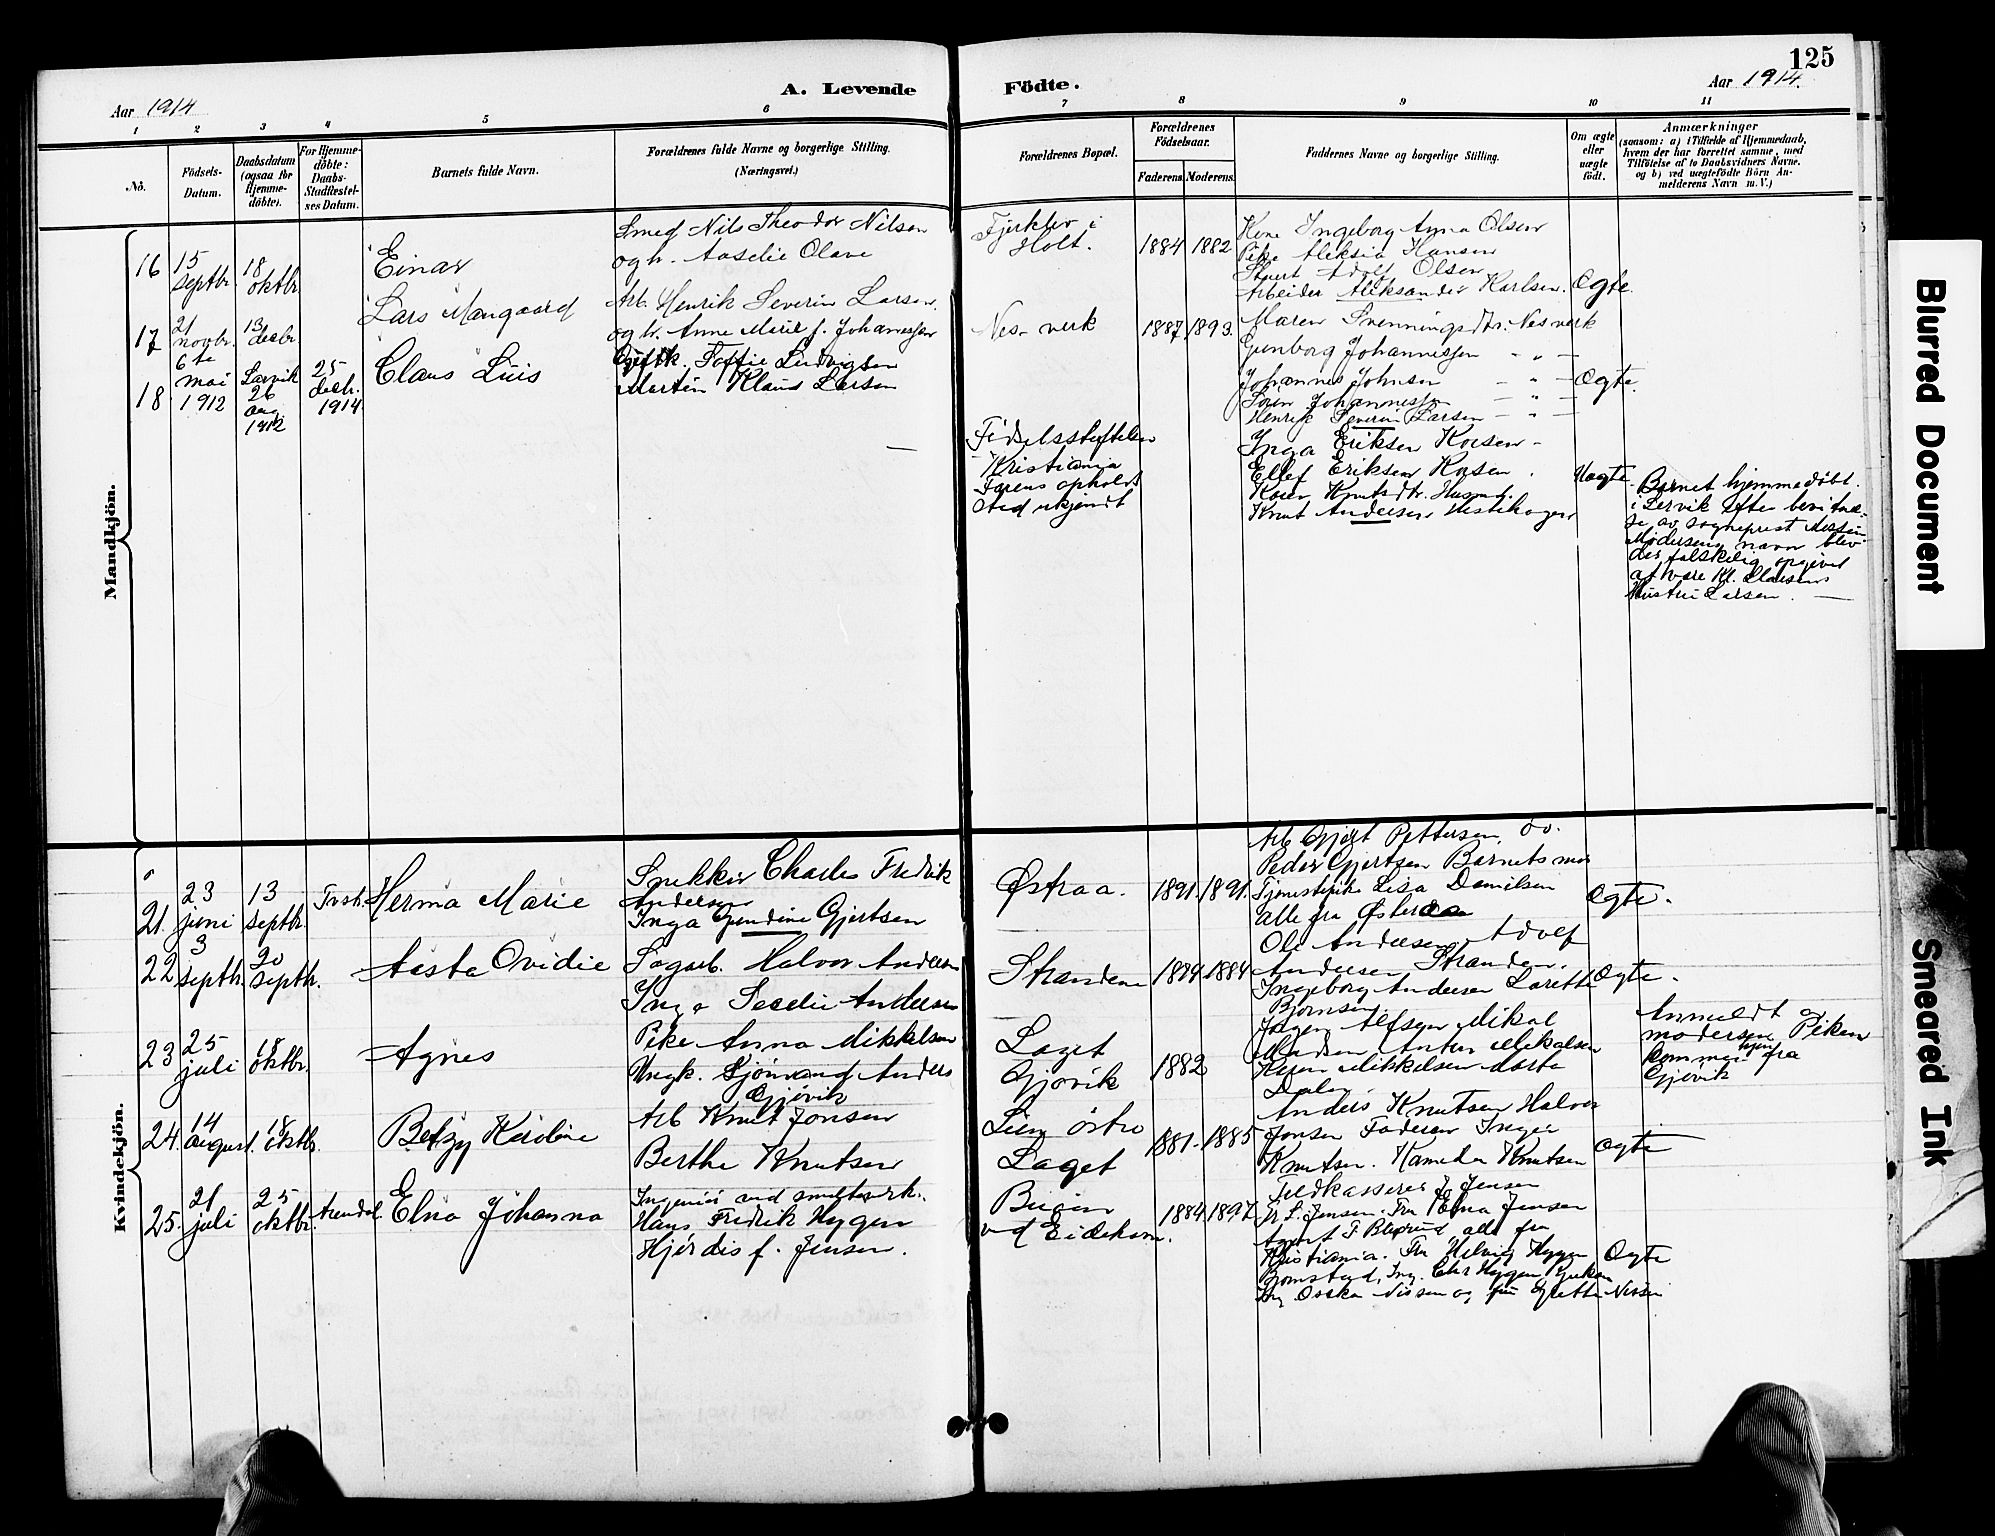 125
Aar 1914
A. Levende
Födte.
Aar 1914.
1 2 3 4 5 6 7 8 9 10 11
No.
Födsels-Datum.
Daabsdatum (ogsaa for Hjemme-döbte).
For Hjemme-döbte: Daabs-Stadfæstel-ses Datum.
Barnets fulde Navn.
Forældrenes fulde Navne og borgerlige Stilling.
(Næringsvei.)
Forældrenes Bopæl.
Forældrenes Födselsaar.
Faderens. Moderens.
Faddernes Navne og borgerlige Stilling.
Om ægte eller uægte födt.
Anmærkninger
(saasom: a) i Tilfælde af Hjemmedaab,
hvem der har forrettet samme, med
Tilföielse af to Daabsvidners Navne,
og b) ved uægtefödte Börn An-
melderens Navn m. V.)
Mandkjön.
16
15 septbr.
18 oktbr.
Einar
Smed Nils Theodor Nilsen
og h. Aaselie Olave
Fjerklev i
Holt.
1884 1882
Kone Ingeborg Anna Olsen
Pike Aleksia Hansen
Adolf Olsen
Arbeider Aleksander Karlsen.
Ægte.
17
21 novbr.
13 decbr.
Lars Mangaard
Arb. Henrik Severin Larsen
og h. Anne Marie f. Johannessen
Nes verk
1887 1893
Maren Svenningsdtr. Nesverk
Gunborg Johannessen - " -
Johannes Johnsen - " -
Johannessen - " -
Henrik Severin Larsen - " -
Ægte.
18
6te mai 1912
Larvik 26 aug. 1912
25 decbr. 1914
Claus Luis
Ludvigsen
Martin Klaus Larsen
Födselsstiftelsen
Kristiania
Farens opholds
sted ukjendt
Inga Eriksen Kosen -
Ellef Eriksen Kosen.
Karen Knutsdtr.
Knut Andersen
Uægte.
Barnet hjemmedöbt
i Larvik efter
sogneprest
Moderens navn blev
der falskelig opgivet
at være Kl. Larsens
Hustru Larsen.
Kvindekjön.
21.
23 juni
13 septbr.
Herma Marie
Snekker Charles Fredrik
Andersen
Inga Gundine Gjertsen
Østraa.
1891. 1891.
Arb Gjert Pettersen,
Peder Gjertsen Barnets mor
Tjenestepike Lisa Danielsen
alle fra Østeraa
Ægte.
22
3 septbr.
20 septbr.
Aasta Ovidie
Sagarb. Halvor Andersen
Inga Andersen
Stranden
1884 1884
Ole Andersen, Adolf
Andersen Stranden.
Ingeborg Andersen Laretta
Bjørnsen
Ægte.
23
25 juli
18 oktbr.
Agnes
Pike Anna Mikkelsen
Ungk. Sjømand Anders
Gjøvik
Laget
Gjøvik
1882
Jørgen Alfsen Mikal
Madsen Anton Mikalsen
Karen Mikkelsen Marte
Dalen
Anmeldt a
moderen Piken
kommet hjem fra
Gjøvik
24.
14 august
18 oktbr.
Betzy Karoline
Arb Knut Jonsen
Berthe Knutsen
Lien östre
Laget
1881. 1885
Anders Knutsen Halvor
Jonsen Faderen Inger
Knutsen. Kamilla Knutsen
Ægte
25.
21 juli
25 oktbr.
Arendal
Elna Johanna
Ingeniør ved smelteverk.
Hans Fredrik Hygen
Hjördis f. Jensen.
Buøen
ved Eidehavn.
1884 1897
Feldkasserer J Jensen
Fr. L. Jensen. Fru Elna Jensen
alle fra
Kristiania. Fru Helvig Hygen
Bjørnstad, Ing. Chr Hygen
Ing Osskar Nissen og fru Grethe Nissen
Ægte
Blurred Document
Smeared Ink